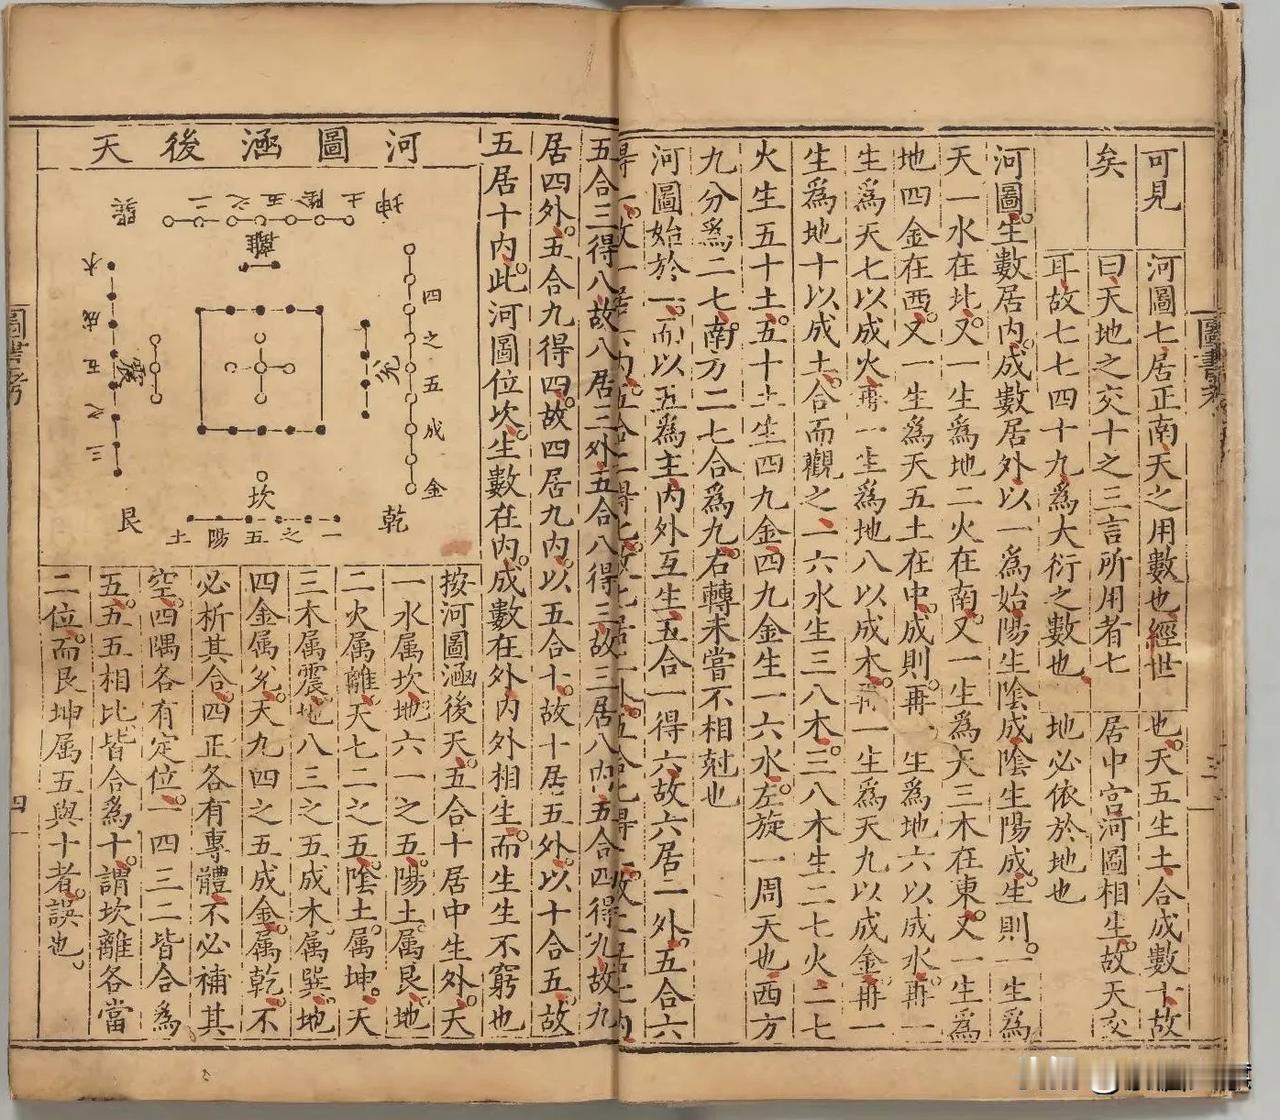 可見 河圖七居正南天之用數也經世 也天五生土合成數十故
矣 曰天地之交十之三言所用者七 居中宮河圖相生故天交
耳故七七四十九爲大衍之數也 地必依於地也
河圖生數居內成數居外以一爲始陽生陰成陰生陽成生則一生爲
天一水在北又一生爲地二火在南又一生爲天三木在東又一生爲
地四金在西又一生爲天五土在中成則再一生爲地六以成水再一
生爲天七以成火再一生爲地八以成木再一生爲天九以成金再一
生爲地十以成土合而觀之一六水生三八木三八木生二七火二七
火生五十土五十土生四九金四九金生一六水左旋一周天也西方
九分爲二七南方二七合爲九右轉未嘗不相尅也
河圖始於一而以五爲主內外互生五合一得六故六居一外五合六
得一故一居六內五合二得七故七居二外五合七得二故二居七內
五合三得八故八居三外五合八得三故三居八內五合四得九故九
居四外五合九得四故四居九內以五合十故十居五外以十合五故
五居十內此河圖位坎生數在內成數在外內外相生而生生不窮也
河圖涵後天
坤
土陰五之二
巽
離
四之五成金
兌
震
三之五成木
坎
乾
一之五陽土
艮
按河圖涵後天五合十居中生外天
一水属坎地六一之五陽土属艮地
二火属離天七二之五陰土属坤天
三木属震地八三之五成木属巽地
四金属兌天九四之五成金属乾不
必析其合四正各有專體不必補其
空四隅各有定位一四三二皆合爲
五五五相比皆合爲十謂坎離各當
二位而艮坤属五與十者誤也
四